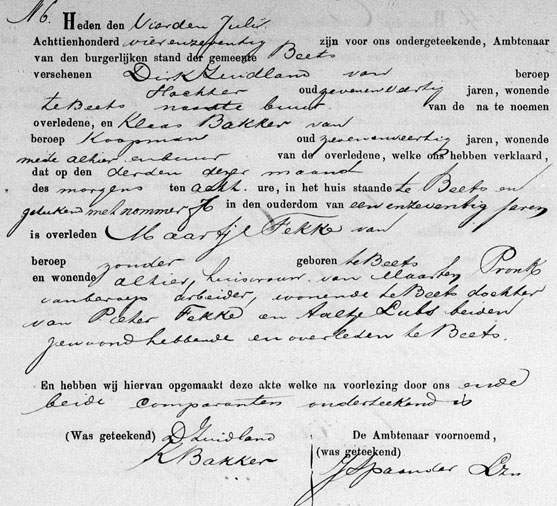 N 6. Heden den Vierden Julij
Achttienhonderd vier en zeventig zijn voor ons ondergeteekende, Ambtonaar
van den burgerlijken stand der gemeente Beets
verschenen Dirk Zuidland van beroep
oud zevenenveertig jaren, wonende
te Beets naaste buur van de na te noemen
overledene, en Klaas Bakker van
beroep Koopman oud zevenenveertig jaren, wonende
mede alhier en buur van de overledene, welke ons hebben verklaard,
dat op den derden dezer maand
des morgens ten acht ure, in het huis staande te Beets en
nommer in den ouderdom van een en zeventig jaren
is overleden Maartje Fekke van
beroep zonder geboren te Beets
en wonende alhier, huisvrouw van Maarten Pronk
van beroep arbeider, wonende te Beets dochter
van Pieter Fekke en Aaltje Lubs beiden
gewoond hebbende en overleden te Beets.
En hebben wij hiervan opgemaakt deze akte welke na voorlezing door ons en de
beide comparanten onderteekend is
(Was geteekend) D Zuidland De Ambtenaar voornoemd,
K Bakker (was geteekend)
J Spaander Dzn